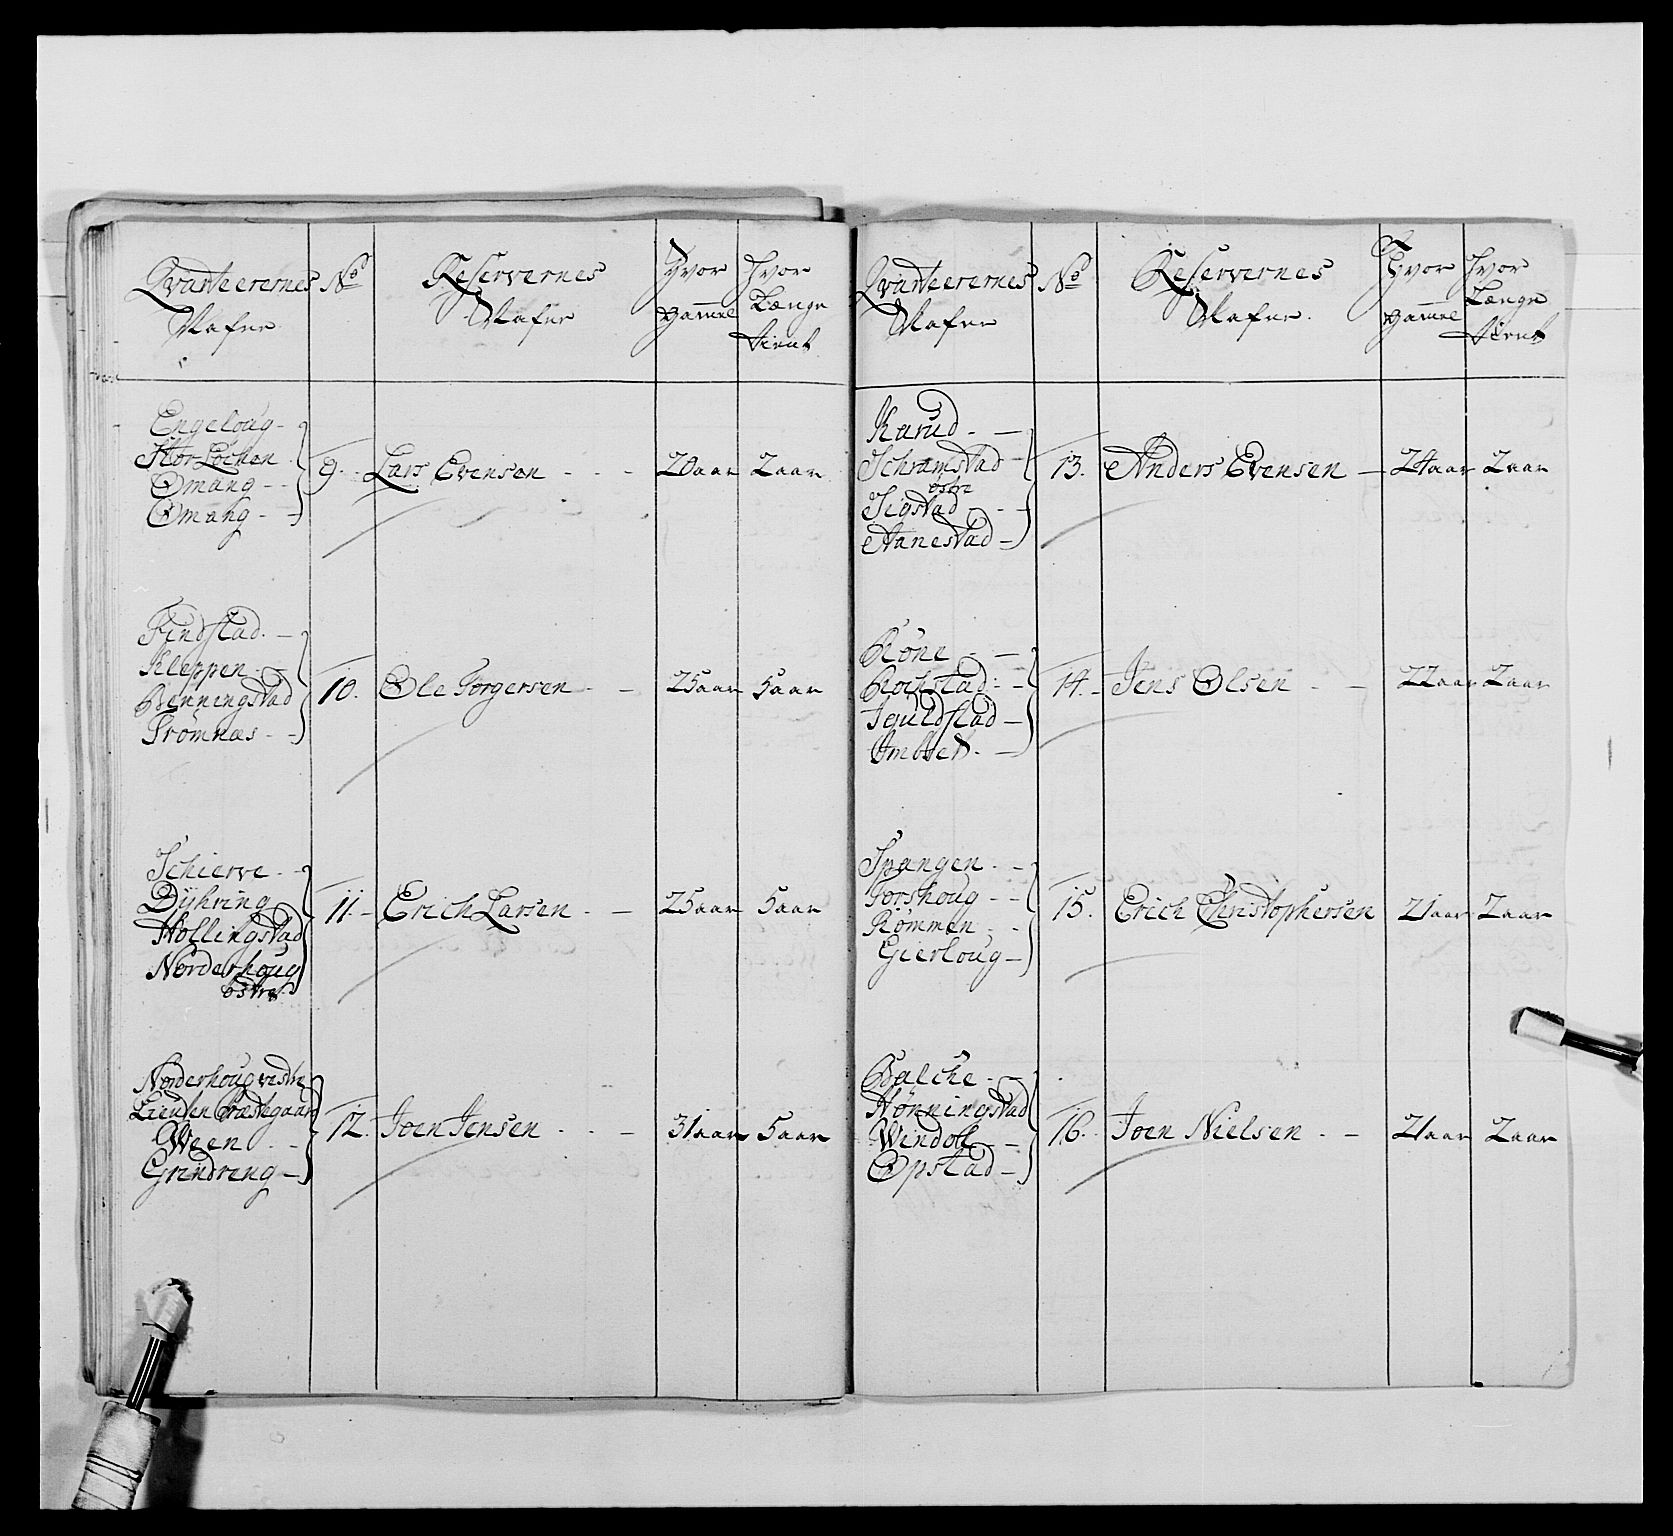 Qvarteerernes Nafne
No
Reservernes Nafne
Hvor Gammel
Hvor Længe tient
Engeloug -
Stor Löchen
Omang - -
Omang - -
9. Lars Evensen - - - 20 aar 2 aar
Findstad. -
Kleppen. -
Benningstad
Trömnæs - -
10. Ole Torgersen - - 25 aar 5 aar
Schierve - -
Dÿhring
Hollingstad
Norderhoug
östre
11. - Erich Larsen - - 25 aar 5 aar
Norderhoug vestre
Lieusen Præstegaard
Ween - -
Grindreng -
12. Joen Jensen - - - 31 aar 5 aar
Qvarteerernes Nafne
No
Reservernes Nafne.
Hvor Gammel
Hvor Længe tient
Karud - -
Schramstad
östre
Sigstad - -
Aanestad -
13. Anders Evensen - 24 aar 2 aar
Röne - -
Rochstad - -
Iguldstad -
Imbset. -
14. - Jens Olsen - - 22 aar 2 aar
Spangen - -
Torshoug - -
Römmen - -
Gierloug -
15. Erich Christophersen 21 aar 2 aar
Balche - -
Hönningstad
Windoll -
Opstad -
16. - Joen Nielsen - - 21 aar 2 aar